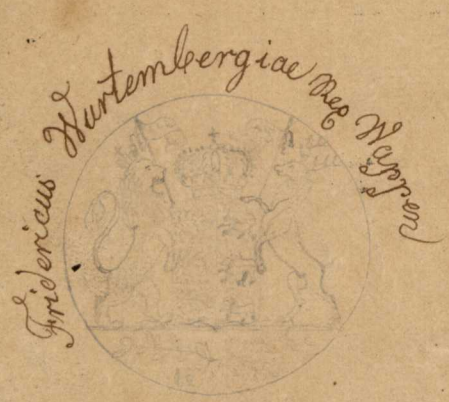 Fridericus Wurtembergiae Rex Wappen